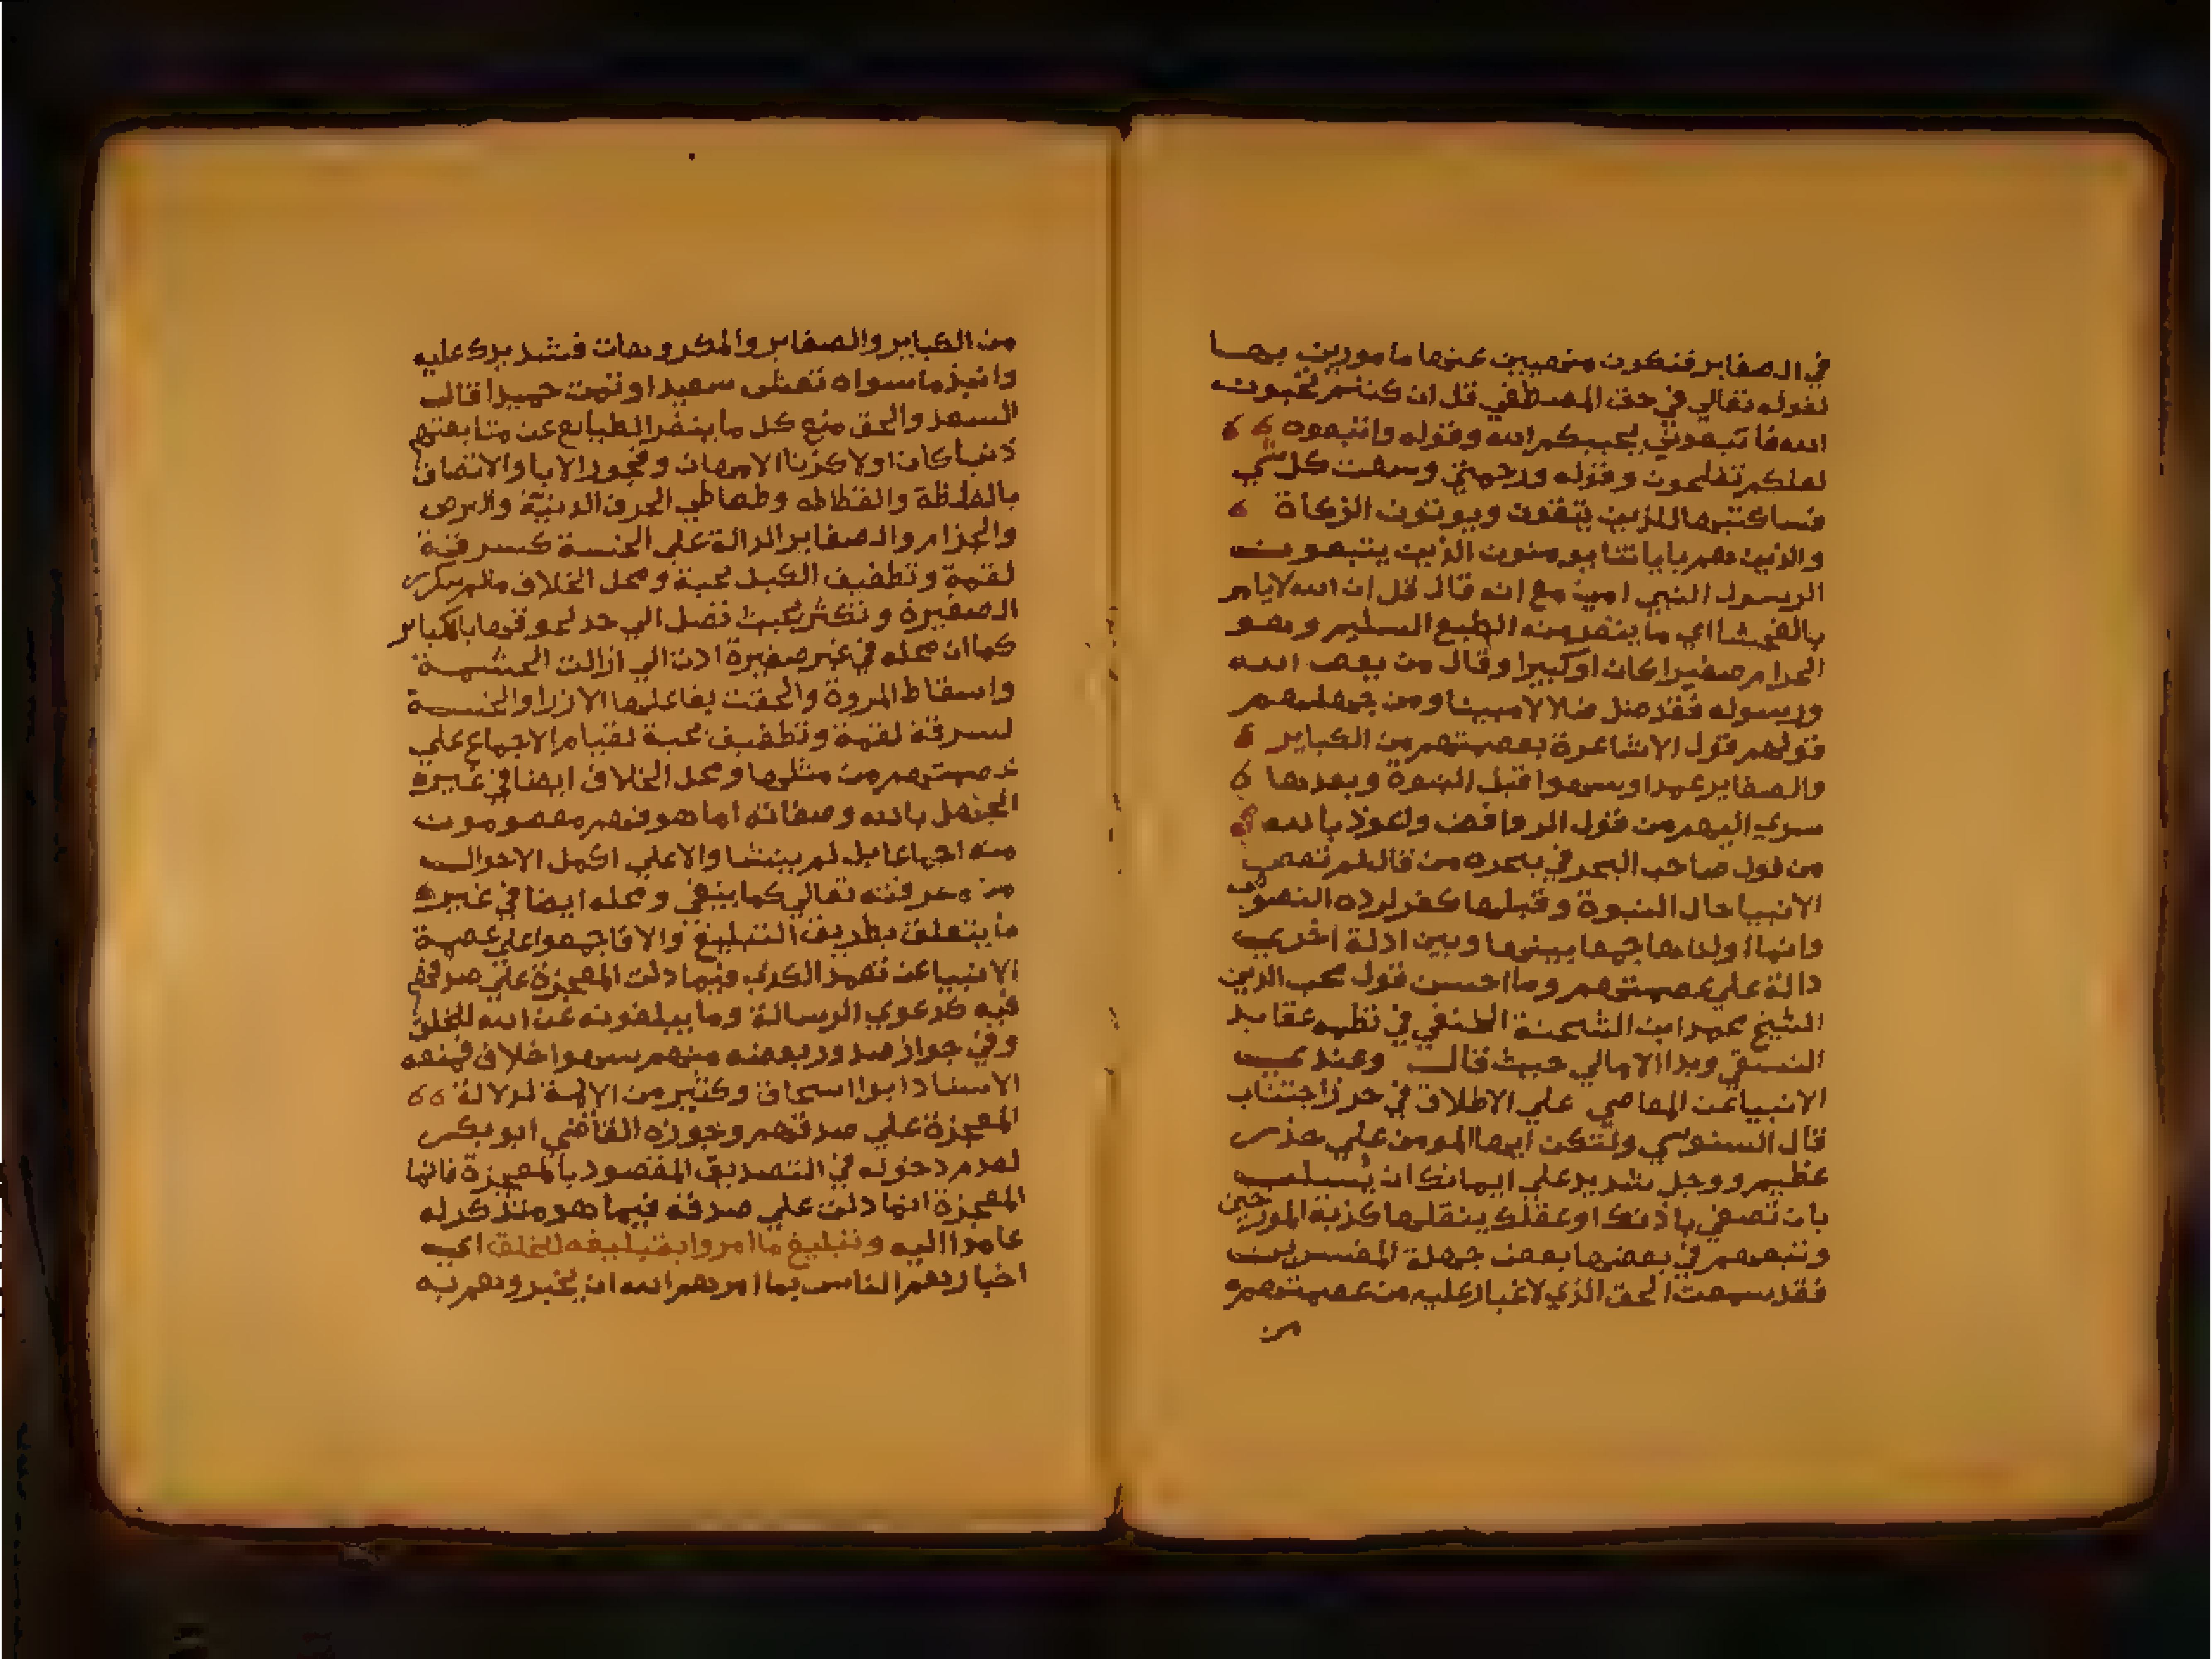 في الصغاير فنكون منهيين عنها مامورين بها
لقوله تعالي في حق المصطفي قل ان كنتم تحبون
الله فاتبعوني يحببكم الله وقوله واتبعوه
لعلكم تفلحون وقوله ورحمتي وسعت كل شي
فساكتبها للذين يتقون ويوتون الزكاة
والذين هم باياتنا يومنون الذين يتبعون
الرسول النبي امي مع انه قال قل ان الله لا يامر
بالفحشا اي ما ينفر منه الطبع السليم وهو
الحرام صغيرا كان او كبيرا وقال من يعص الله
ورسوله فقد ضل ضلالا مبينا ومن جهلهم
قولهم قول الاشاعرة بعصمتهم من الكباير
والصغاير عمدا وسهوا قبل النبوة وبعدها
سري اليهم من قول الروافض واعوذ بالله
من قول صاحب البحر في بحره من قال لم تعص
الانبيا حال النبوة وقبلها كفر لرده النصوص
وانها اولناها جمعا بينها وبين ادلة اخري
دالة علي عصمتهم وما احسن قول محب الدين
الشيخ محمد ابن الشحنة الحنفي في نظمه عقايد
النسفي وبدا الامالي حيث قال وعندي
الانبيا عن المعاصي علي الاطلاق في حرز اجتناب
قال السنوسي ولتكن ايها المومن علي حذر
عظيم ووجل شديد علي ايمانك ان يسلب
بان تصغي باذنك او عقلك ينقلها كذبة المورخين
وتبعهم في بعضها بعض جهلة المفسرين
فقد سمعت الحق الذي لا غبار عليه من عصمتهم و
من
من الكباير والصغاير والمكروهات فشد يدك عليه
وانبذ ما سواه تعش سعيدا وتمت حميدا قال
السعد والحق منع كل ما ينفر الطبايع عن متابعتهم
ذنبا كان اولا كزنا الامهات وفجور الابا والاتصاف
بالغلظة والفظاظه وطعاطي الحرف الدنية والبرص
والجذام والصغاير الدالة علي الخسة كسرقة
لقمة وتطفيف الكيل بحبة ومحل الخلاف مالم يتكرر
الصغيرة وتكثر بحيث تصل الي حد لحوقها بالكباير
كما ان محله في غير صغيرة ادت الي ازالت الحشمة
واسقاط المروة والحقت بفاعلها الازرا والخسة
لسرقة لقمة وتطفيف بحبة لقيام الاجماع علي
عصمتهم من مثلها ومحل الخلاف ايضا في غيره
الجهل بالله وصفاته اما هو فهم معصومون
منه اجماعا بل لم ينشا والا علي اكمل الاحوال
من معرفته تعالي كما ينبغي ومحله ايضا في غيره
ما يتعلق بطريق التبليغ والا فاجمعوا علي عصمة
الانبيا عن تعمد الكذب فيما دلت المعجزة علي صدقهم
فيه كدعوي الرسالة وما يبلغونه عن الله للخلق
وفي جواز صدور بعضه منهم سهوا خلاف فمنعه
الاستاذ ابوا اسحاق وكثير من الايمة لدلالة
المعجزة علي صدقهم وجوزه القاضي ابو بكر
لعدم دخوله في التصديق المقصود بالمعجزة فانها
المعجزة انما دلت علي صدقه فيما هو متذكر له
عامدا اليه وتبليغ ما امروا بتبليغه للخلق اي
اخبارهم الناس بما امرهم الله ان يخبروهم به